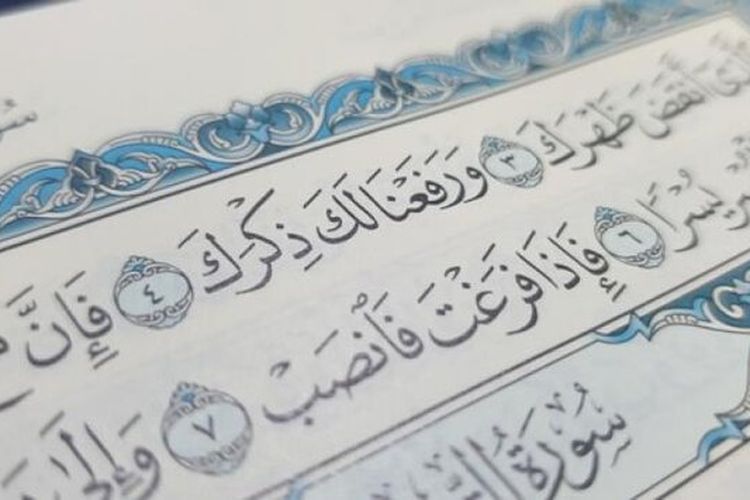 أَنقَضَ ظَهْرَكَ ٣ وَرَفَعْنَا لَكَ ذِكْرَكَ ٤ فَإِنَّ
يُسْرًا ٦ فَإِذَا فَرَغْتَ فَٱنصَبْ ٧ وَإِلَىٰ
سُورَةُ